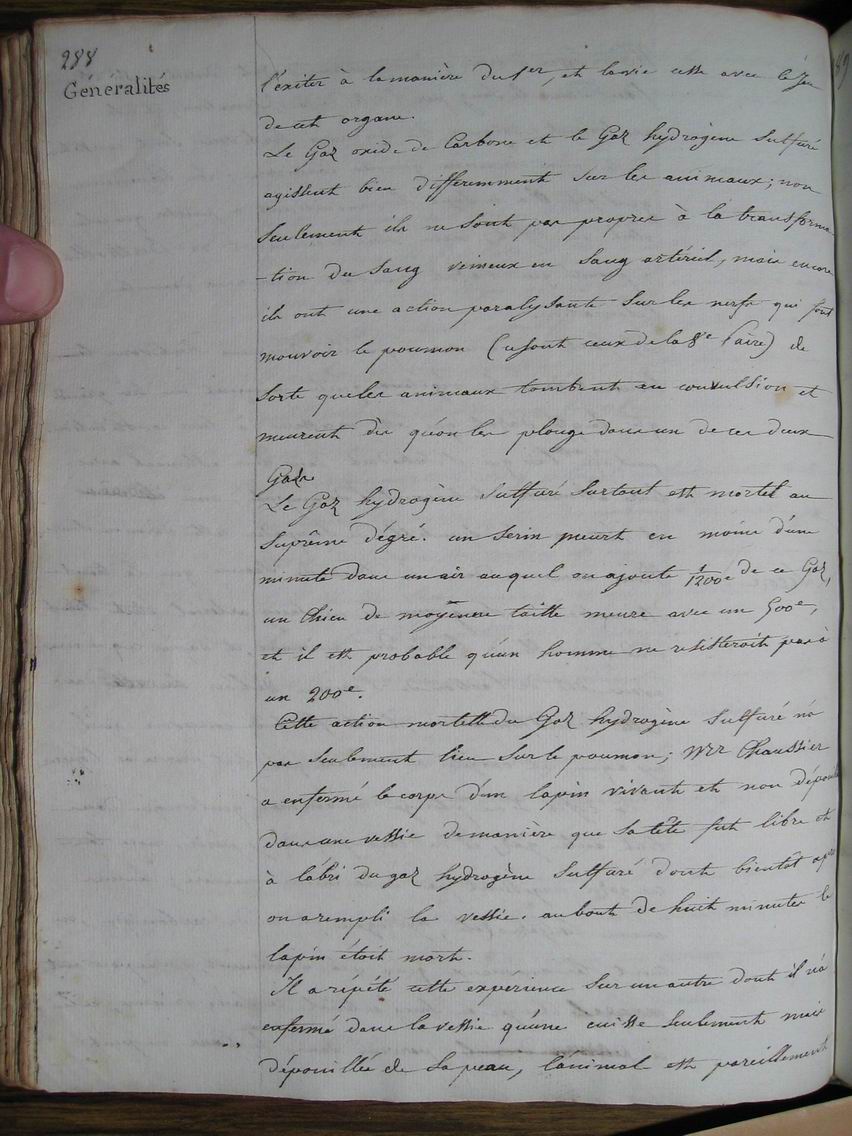 288
Généralités
l'exiter à la manière du 1er, et la vie cesse avec le jeu
de cet organe.
Le Gaz oxide de Carbone et le Gaz hydrogène Sulfuré
agissent bien differemment sur les animaux; non
seulement ils ne sont pas propres à la transforma
-tion du Sang veineux en Sang artériel, mais encore
ils ont une action paralysante sur les nerfs qui font
mouvoir le poumon (ce sont ceux de la 8e Paire) de
sorte que les animaux tombent en convulsion et
meurent dès qu'on les plonge dans un de ces deux
Gazs
Le Gaz hydrogène Sulfuré surtout est mortel au
suprême dégré. un serin meurt en moins d'une
minute dans un air auquel on ajoute 1/1200e de ce Gaz,
un Chien de moyenne taille meure avec un 500e,
et il est probable qu'un homme ne résisteroit pas à
un 200e.
Cette action mortelle du Gaz hydrogène Sulfuré n'a
pas seulement lieu sur le poumon; Mr Chaussier
a enfermé le corps d'un lapin vivant et non dépouil
dans une vessie de manière que sa tête fut libre et
à l'abri du gaz hydrogène Sulfuré dont bientôt après
on a rempli la vessie. au bout de huit minutes le
lapin étoit mort.
Il a répété cette expérience sur un autre dont il n'a
enfermé dans la vessie qu'une cuisse seulement mais
dépouillée de sa peau, l'animal est pareillement